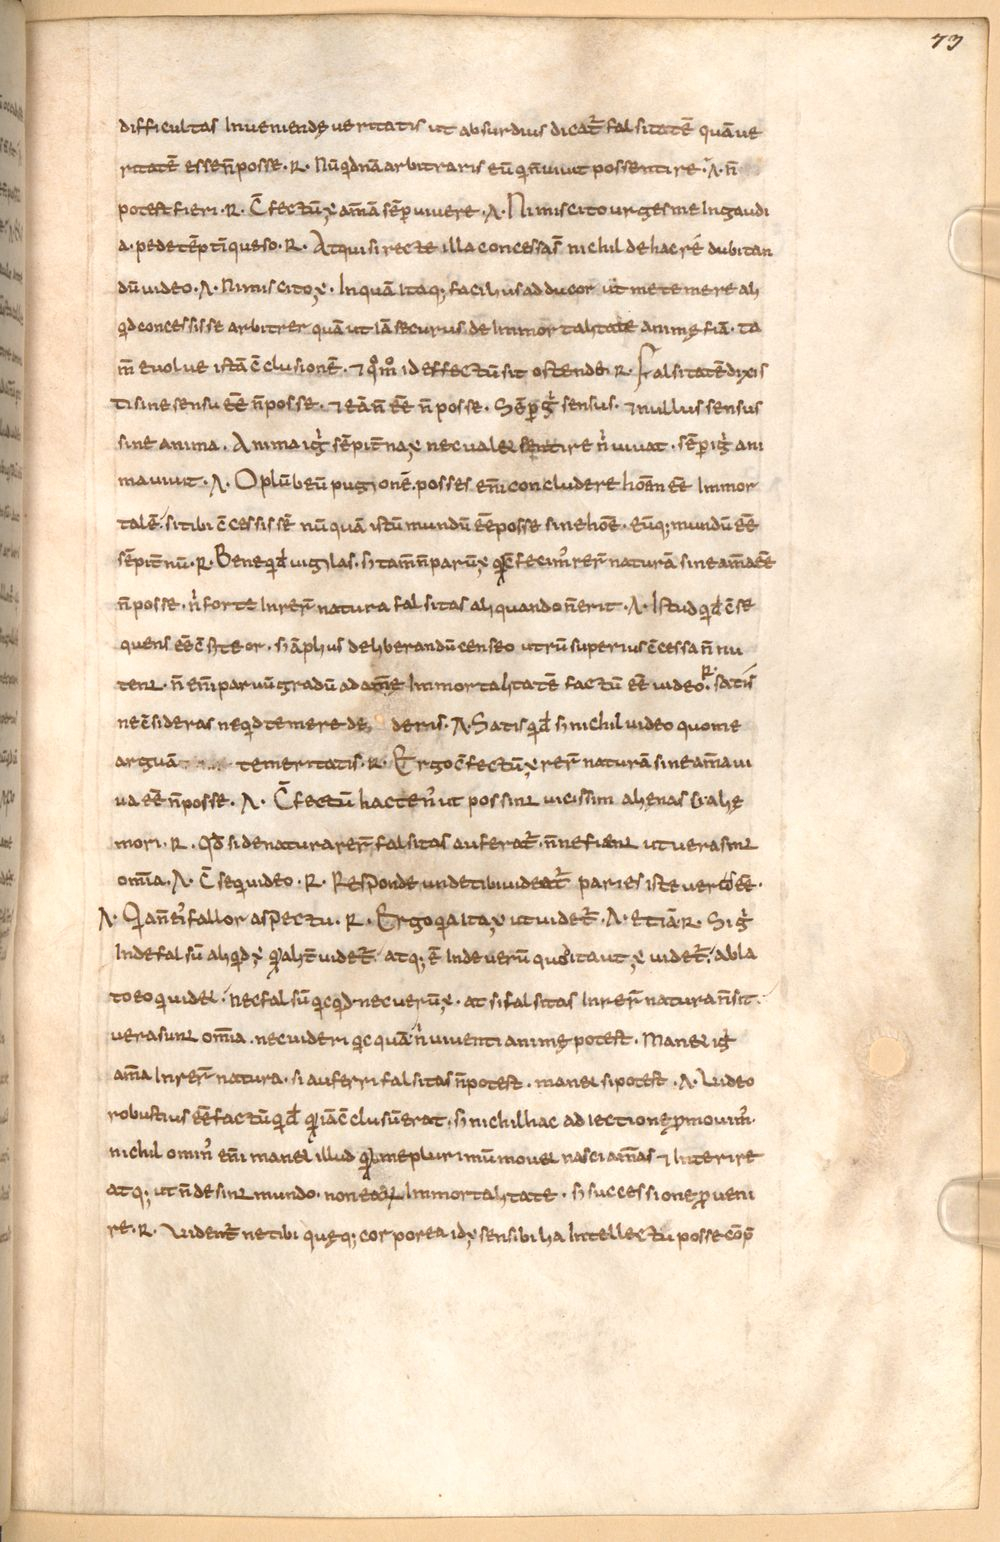 73
difficultas Inueniendę ueritatis ut absurdius dicat̄ falsitatē quā ue
ritatē esse n̄ posse · R · Nū qd nā arbitraris eū q n̄ uiuit posse sentire · A · n̄
potest fieri · R · C̄fectū ÷ amā sēp uiuere · A · Nimis cito urges me In gaudi
a · pedetēptī queso · R · Atqui si recte illa concessa s̄ nichil de hac ré dubitan
dū uideo · A · Nimis cito ÷ · Inquā Itaq; facilius adducor ut me temere ali
qd concessisse arbitrer quā ut iā securus de Immortalitate animę fiā · ta
m̄ euolue istā c̄clusionē · & qm̊o id effectū sit ostende · R · Falsitatē dixis
ti sine sensu eē n̄ posse · & eā n̄ eē n̄ posse · Sēp g̊ sensus · & nullus sensus
sine anima · Anima ig̊ sēpit̄na ÷ nec ualet sentire n̊ uiuat · sēp ig̊ ani
ma uiuit · A · O plūbeū pugionē · posses eni concludere hoēm eē Immor
talē · si tibi c̄cessissē nūquā istū mundū eē posse sine hoē · eūq; mundū eē
sēpit̄nū · R · Bene qd uigilas · s; tam̄ n̄ parū ÷ qd c̄fecim' rer̄ naturā sine ama eē
n̄ posse · n̊ forte In rer̄ natura falsitas aliquando n̄ erit · A · Istud qd c̄se
quens eē c̄fiteor · s; āplius deliberandū censeo utrū superius c̄cessa n̄ nu
tent · n̄ eni paruū gradū ad amę Immortalitatē factū eē uideo · R · satis
ne c̄sideras ne qd temere de deris · A · Satis qd s; nichil uideo quo me
arguā temeritatis · R · Ergo c̄fectū ÷ rer̄ naturā sine ama ui
ua eē n̄ posse · A · C̄fectū hacten' ut possint uicissim alię nasci alię
mori · R · Qd si de natura rer̄ falsitas auferat̄ · n̄ne fient ut uera sint
omīa · A · C̄sequi uideo · R · Responde unde tibi uideat̄ paries iste uerus eē ·
A · Qa n̄ ei' fallor aspectu · R · Ergo qa Ita ÷ ut uidet̄ · A · Etiā · R · Si g̊
Inde falsū aliqd ÷ qd alit̄ uidet̄ · atq; ē Inde uerū quod ita ut ÷ uidet̄ · abla
to eo qui uidet · nec falsū qcqd nec uerū ÷ · at si falsitas In rer̄ natura n̄ sit ·
uera sunt omīa · nec uideri qcquā n̊ uiuenti animę potest · Manet ig̊
ama In rer̄ natura · si auferri falsitas n̄ potest · manet si potest · A · Uideo
robustius eē factū qd qd iā c̄clusū erat · s; nichil hac adiectione pmouim' ·
nichil omin' eni manet illud qd me plurimū mouet nasci amas & Interire
atq; ut n̄ desint mundo · non eaꝝ Immortalitate · s; successione pueni
re · R · Uident̄ ne tibi quęq; corporea id÷ sensibilia Intellectu posse cōp̄